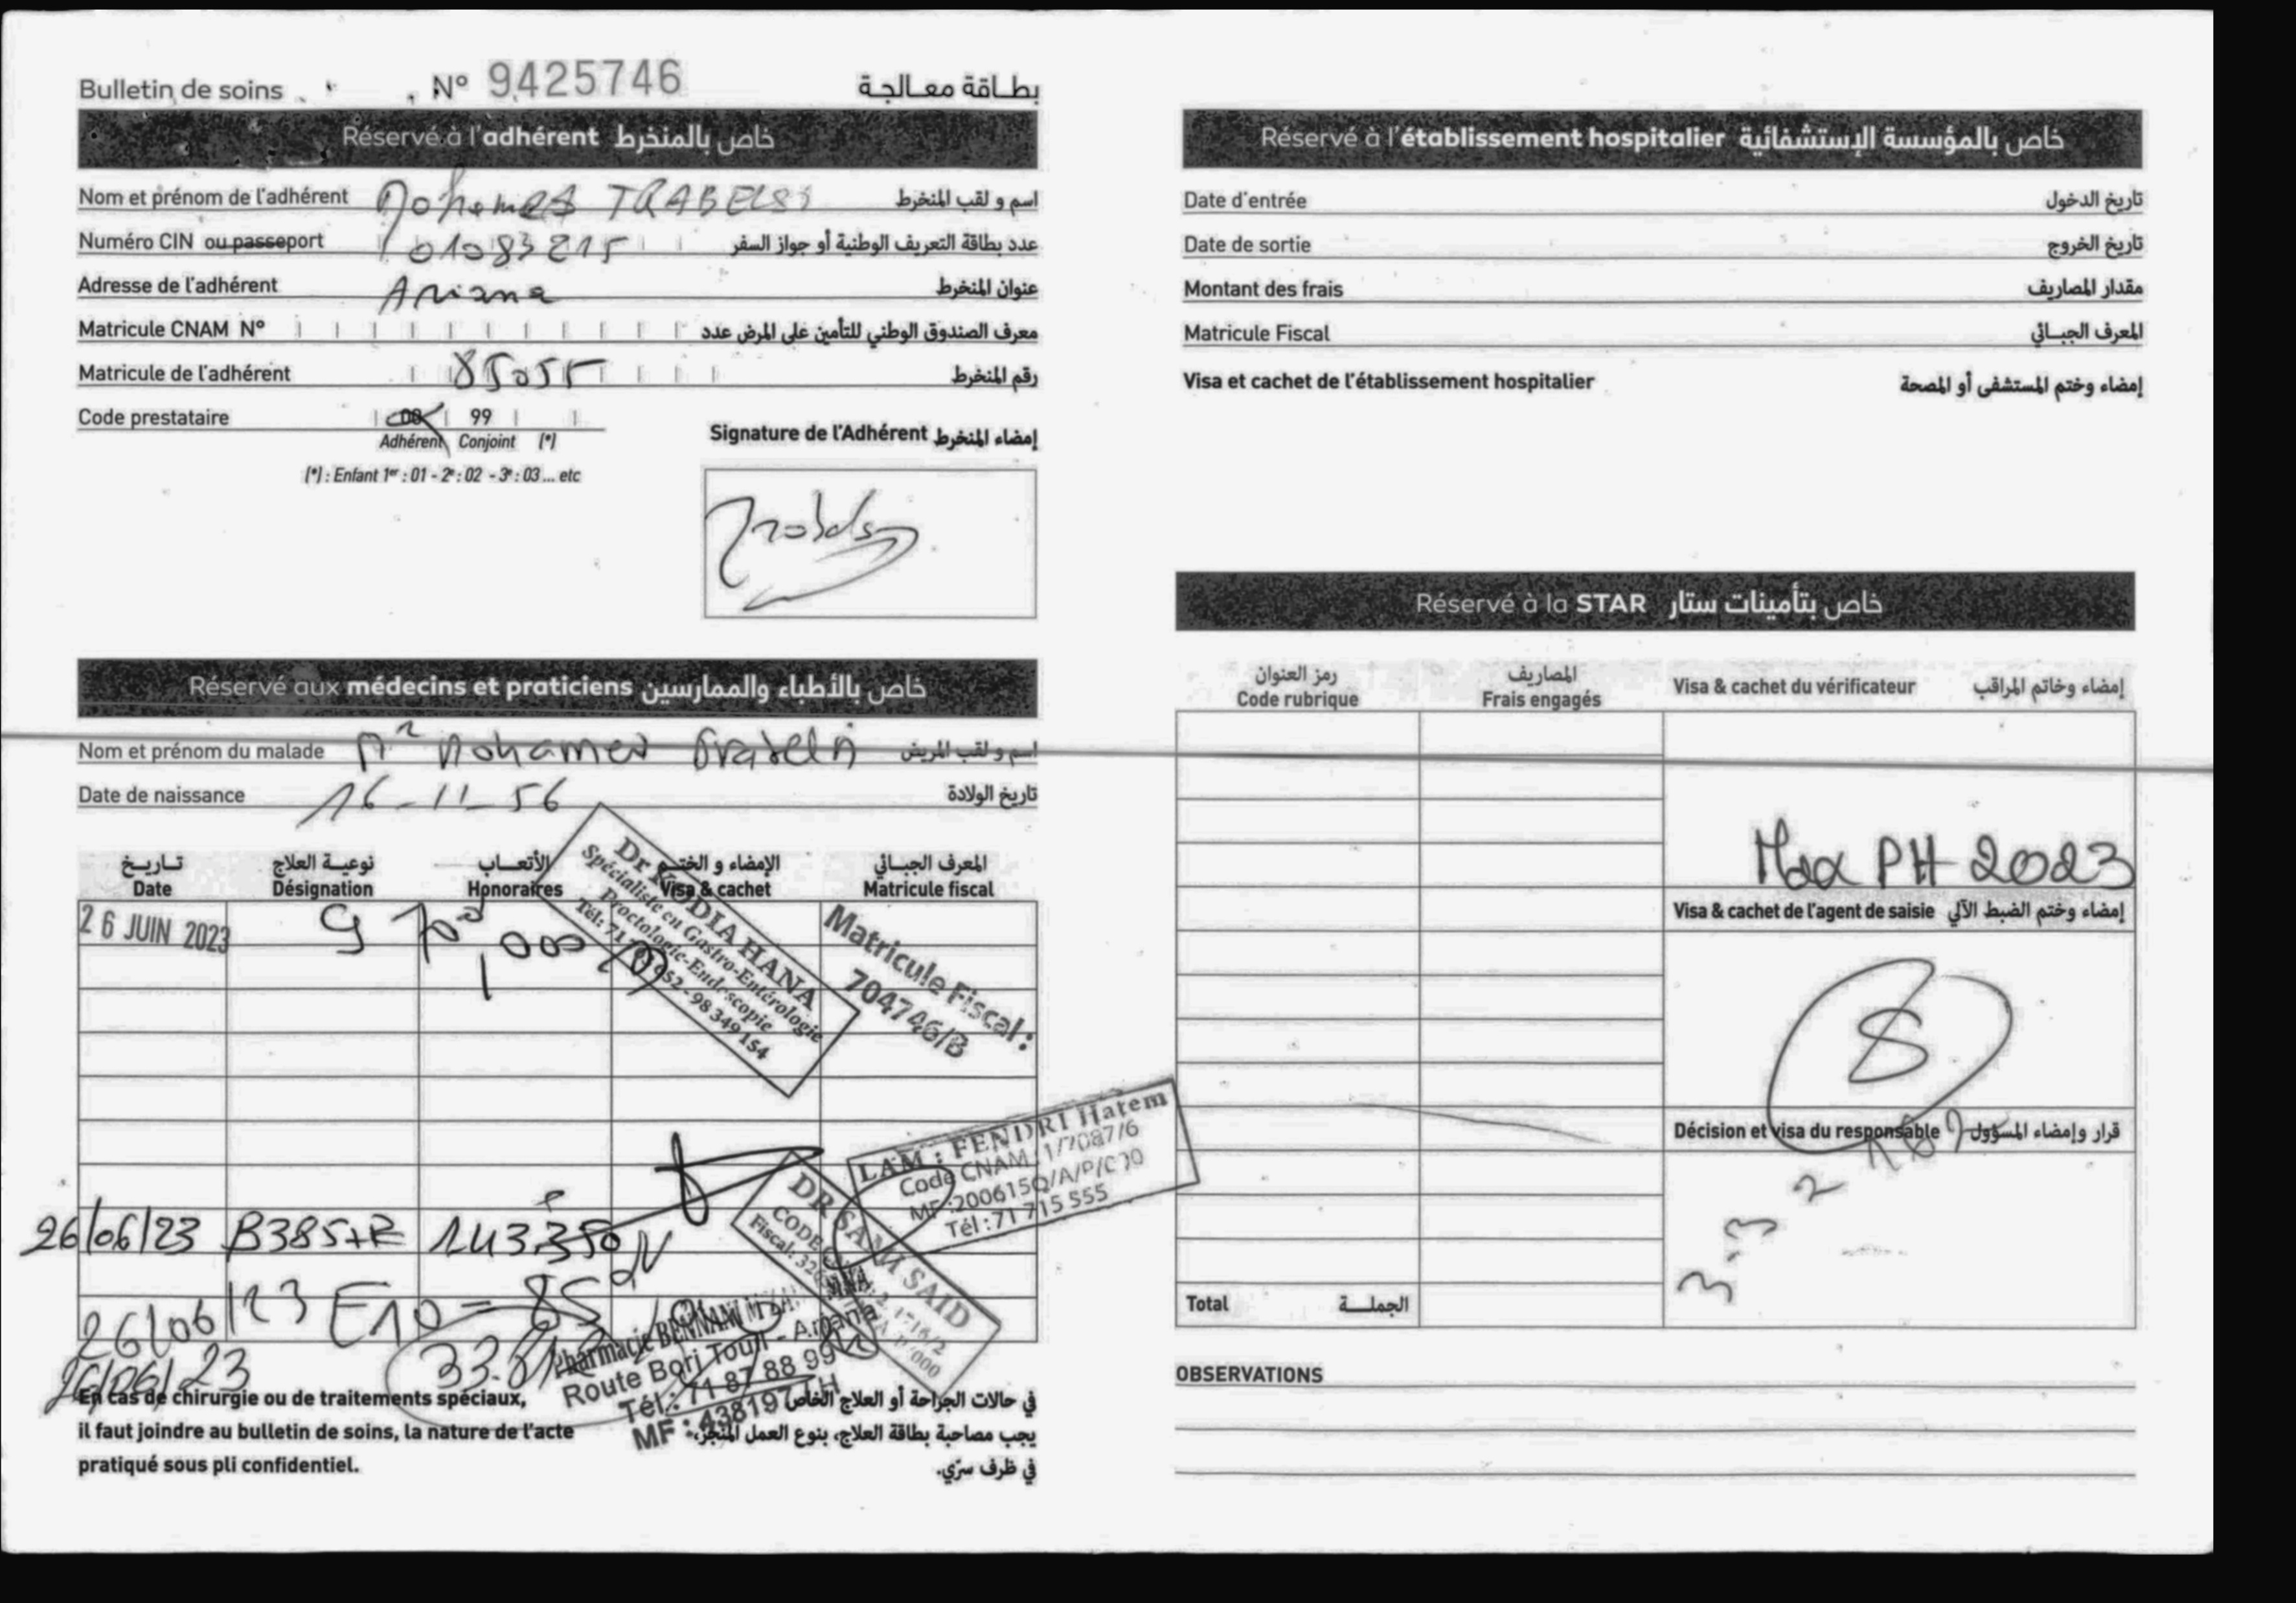 Bulletin de soins N° 9425746 بطاقة معالجة
Réservé à l'adhérent خاص بالمنخرط
Nom et prénom de l'adhérent Mohamed TRABELSI اسم و لقب المنخرط
Numéro CIN ou passeport 01083215 عدد بطاقة التعريف الوطنية أو جواز السفر
Adresse de l'adhérent Ariana عنوان المنخرط
Matricule CNAM N° معرف الصندوق الوطني للتأمين على المرض عدد
Matricule de l'adhérent 85055 رقم المنخرط
Code prestataire 00 99
Adhérent Conjoint (*)
(*) : Enfant 1er : 01 - 2e : 02 - 3e : 03 ... etc
Signature de l'Adhérent إمضاء المنخرط
Réservé aux médecins et praticiens خاص بالأطباء والممارسين
Nom et prénom du malade Mr Mohamed Trabelsi اسم و لقب المريض
Date de naissance 16-11-56 تاريخ الولادة
تاريخ نوعية العلاج الأتعاب الإمضاء و الختم المعرف الجبائي
Date Désignation Honoraires Visa & cachet Matricule fiscal
26 JUIN 2023
Dr KHODIA HANA
Spécialiste en Gastro-Entérologie
Proctologie-Endoscopie
952 - 98 349 154
Matricule Fiscal :
704746/B
LAM : FENDRI Hatem
Code CNAM : 1/7087/6
Tél : 71 715 555
26/06/23 B385+R 143,350
DR SAMI SAID
26/06/23 E10 = 85
26/06/23
Pharmacie
Route Borj Touil - Ariana
Tél : 71 87 88 99
MF : 438197
En cas de chirurgie ou de traitements spéciaux,
il faut joindre au bulletin de soins, la nature de l'acte
pratiqué sous pli confidentiel.
في حالات الجراحة أو العلاج الخاص
يجب مصاحبة بطاقة العلاج، بنوع العمل المنجز،
في ظرف سرّي.
Réservé à l'établissement hospitalier خاص بالمؤسسة الإستشفائية
Date d'entrée تاريخ الدخول
Date de sortie تاريخ الخروج
Montant des frais مقدار المصاريف
Matricule Fiscal المعرف الجبائي
Visa et cachet de l'établissement hospitalier إمضاء وختم المستشفى أو المصحة
Réservé à la STAR خاص بتأمينات ستار
رمز العنوان المصاريف
Code rubrique Frais engagés Visa & cachet du vérificateur إمضاء وخاتم المراقب
Max PH 2023
Visa & cachet de l'agent de saisie إمضاء وختم الضبط الآلي
8
Décision et visa du responsable قرار وإمضاء المسؤول
Total الجملة
OBSERVATIONS